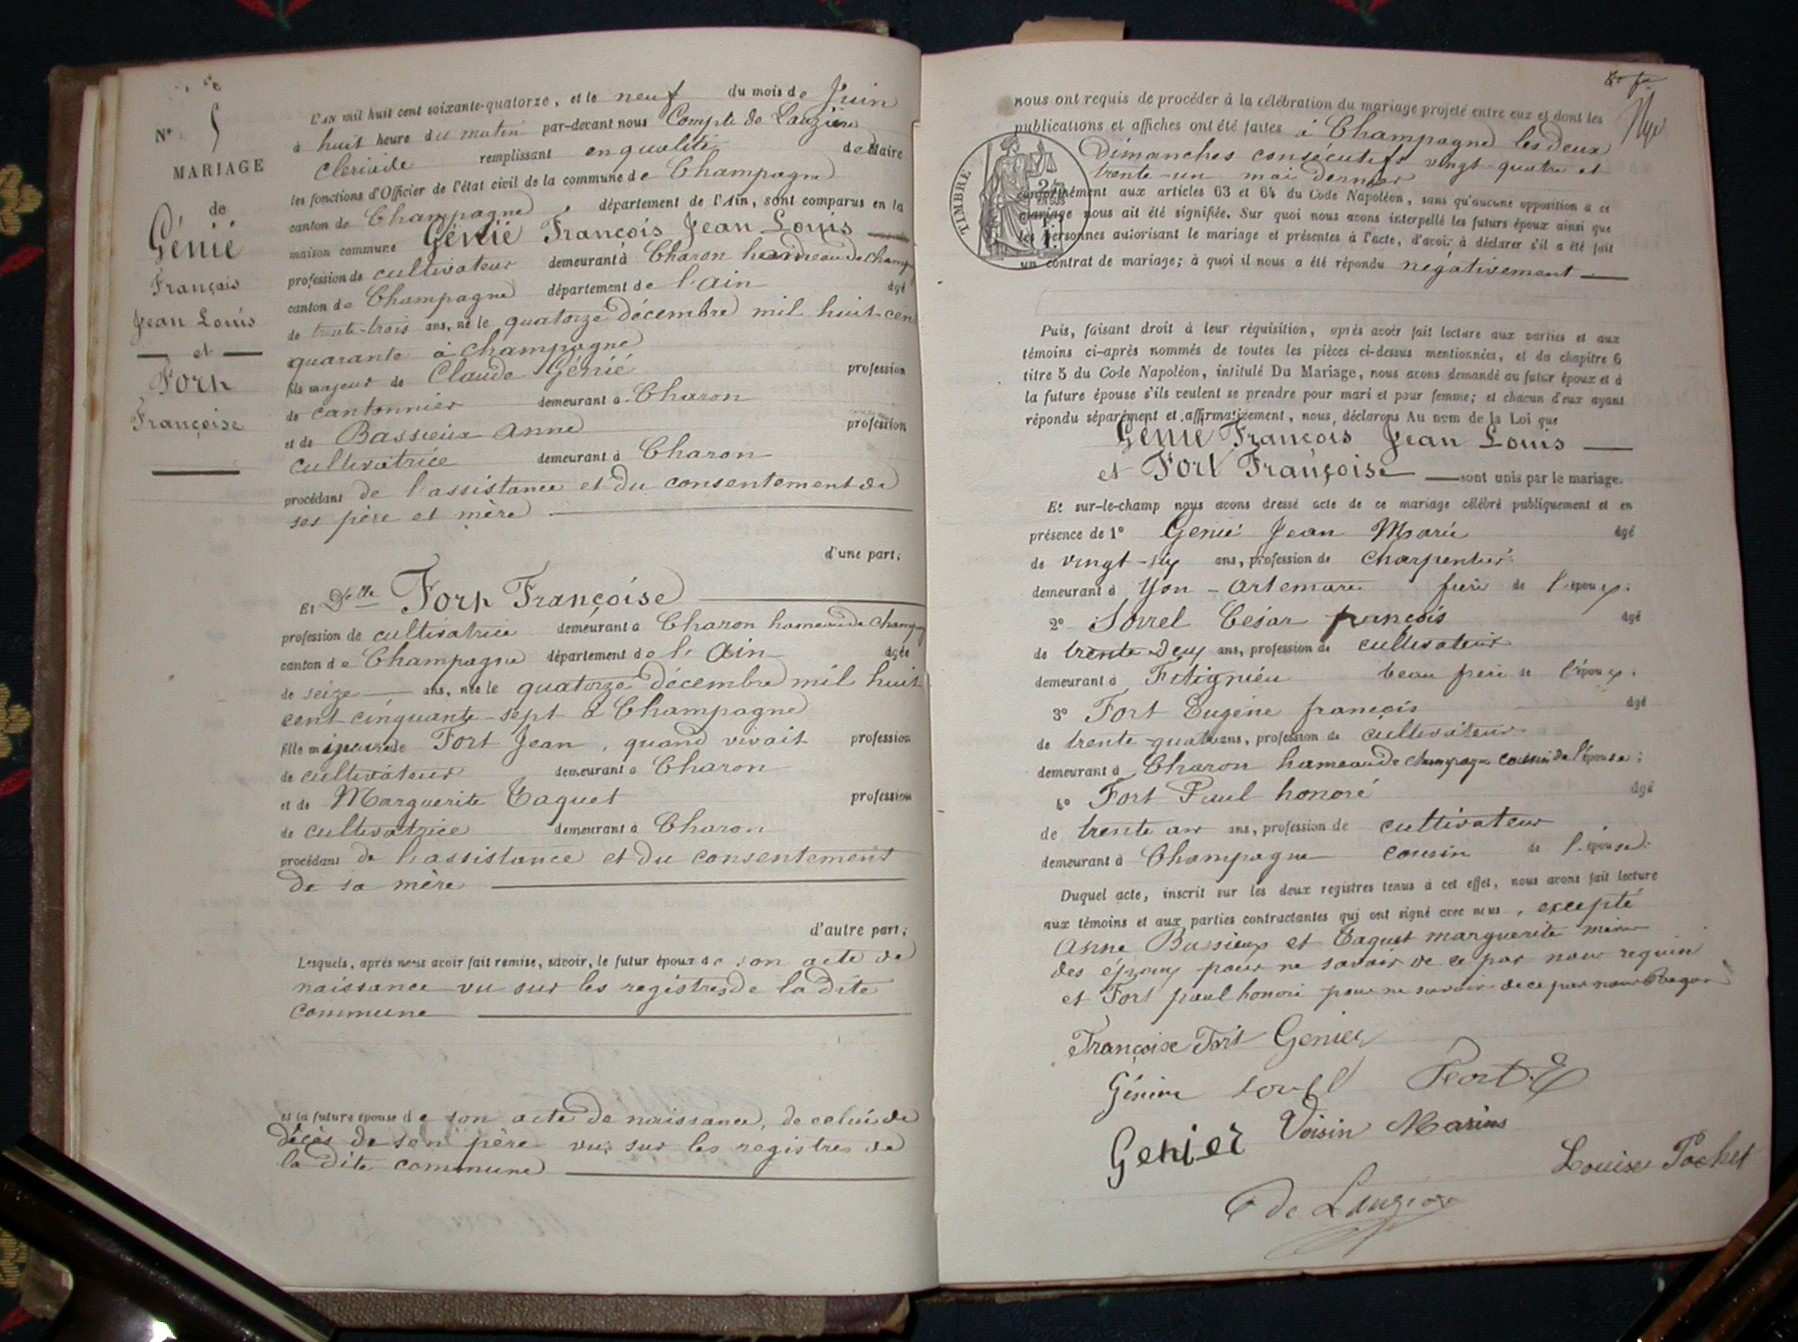 N° 5
MARIAGE
de
Génié
François
Jean Louis
et
Fort
Françoise
L'an mil huit cent soixante-quatorze, et le neuf du mois de Juin
à huit heure du matin par-devant nous Compte de Lauzière
remplissant en qualité de Maire
les fonctions d'Officier de l'état civil de la commune de Champagne
canton de Champagne, département de l'Ain, sont comparus en la
maison commune Génié François Jean Louis
profession de cultivateur demeurant à Charon hameau de Champ
canton de Champagne département de l'Ain âgé
de trente-trois ans, né le quatorze décembre mil huit cent
quarante à Champagne
fils majeur de Claude Génié profession
de cantonnier demeurant à Charon
et de Bassieux Anne profession
cultivatrice demeurant à Charon
procédant de l'assistance et du consentement de
ses père et mère
d'une part;
Et Delle Fort Françoise
profession de cultivatrice demeurant à Charon hameau de Champ
canton de Champagne département de l'Ain âgée
de seize ans, née le quatorze décembre mil huit
cent cinquante-sept à Champagne
fille mineure de Fort Jean, quand vivait profession
de cultivateur demeurant à Charon
et de Marguerite Taquet profession
de cultivatrice demeurant à Charon
procédant de l'assistance et du consentement
de sa mère
d'autre part;
Lesquels, après nous avoir fait remise, savoir, le futur époux de son acte de
naissance vu sur les registres de la dite
commune
et la future épouse de son acte de naissance, de celui de
décès de son père vus sur les registres de
la dite commune
nous ont requis de procéder à la célébration du mariage projeté entre eux et dont les
publications et affiches ont été faites à Champagne les deux
Dimanches consécutifs vingt-quatre et
trente-un mai dernier
conformément aux articles 63 et 64 du Code Napoléon, sans qu'aucune opposition a ce
mariage nous ait été signifiée. Sur quoi nous avons interpellé les futurs époux ainsi que
les personnes autorisant le mariage et présentes à l'acte, d'avoir à déclarer s'il a été fait
un contrat de mariage; à quoi il nous a été répondu négativement
TIMBRE
Puis, faisant droit à leur réquisition, après avoir fait lecture aux parties et aux
témoins ci-après nommés de toutes les pièces ci-dessus mentionnées, et du chapitre 6
titre 5 du Code Napoléon, intitulé Du Mariage, nous avons demandé au futur époux et à
la future épouse s'ils veulent se prendre pour mari et pour femme; et chacun d'eux ayant
répondu séparément et affirmativement, nous déclarons Au nom de la Loi que
Génié François Jean Louis
et Fort Françoise sont unis par le mariage.
Et sur-le-champ nous avons dressé acte de ce mariage célébré publiquement et en
présence de 1° Génié Jean Marie âgé
de vingt-six ans, profession de charpentier
demeurant à Yon-Artemare frère de l'époux.
2° Sorrel César françois âgé
de trente deux ans, profession de cultivateur
demeurant à Fitignieu beau frère de l'époux.
3° Fort Eugène françois âgé
de trente quatre ans, profession de cultivateur
demeurant à Charon hameau de Champagne cousin de l'épouse;
4° Fort Paul honoré âgé
de trente ans, profession de cultivateur
demeurant à Champagne cousin de l'épouse.
Duquel acte, inscrit sur les deux registres tenus à cet effet, nous avons fait lecture
aux témoins et aux parties contractantes qui ont signé avec nous, excepté
Anne Bassieux et Taquet marguerite mère
des époux pour ne savoir de ce par nous requis
et Fort paul honoré pour ne savoir de ce par nous
Françoise Fort Genier
Fort E
Genier Voisin Marius
Louise Pochet
de Lauzière